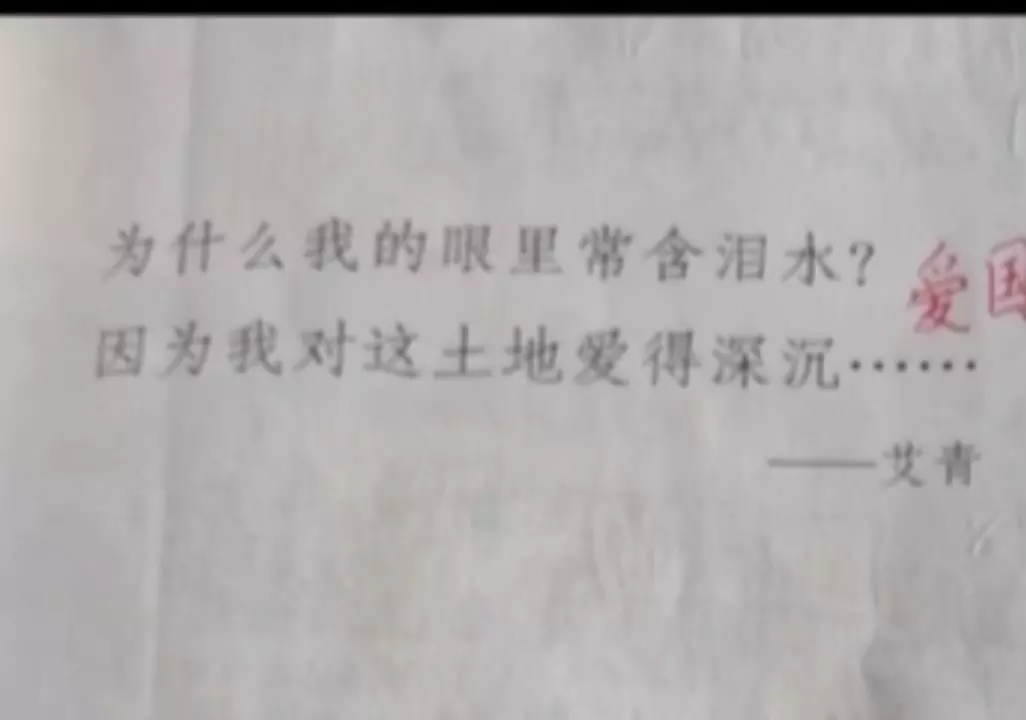 为什么我的眼里常含泪水?
爱国
因为我对这土地爱得深沉……
——艾青